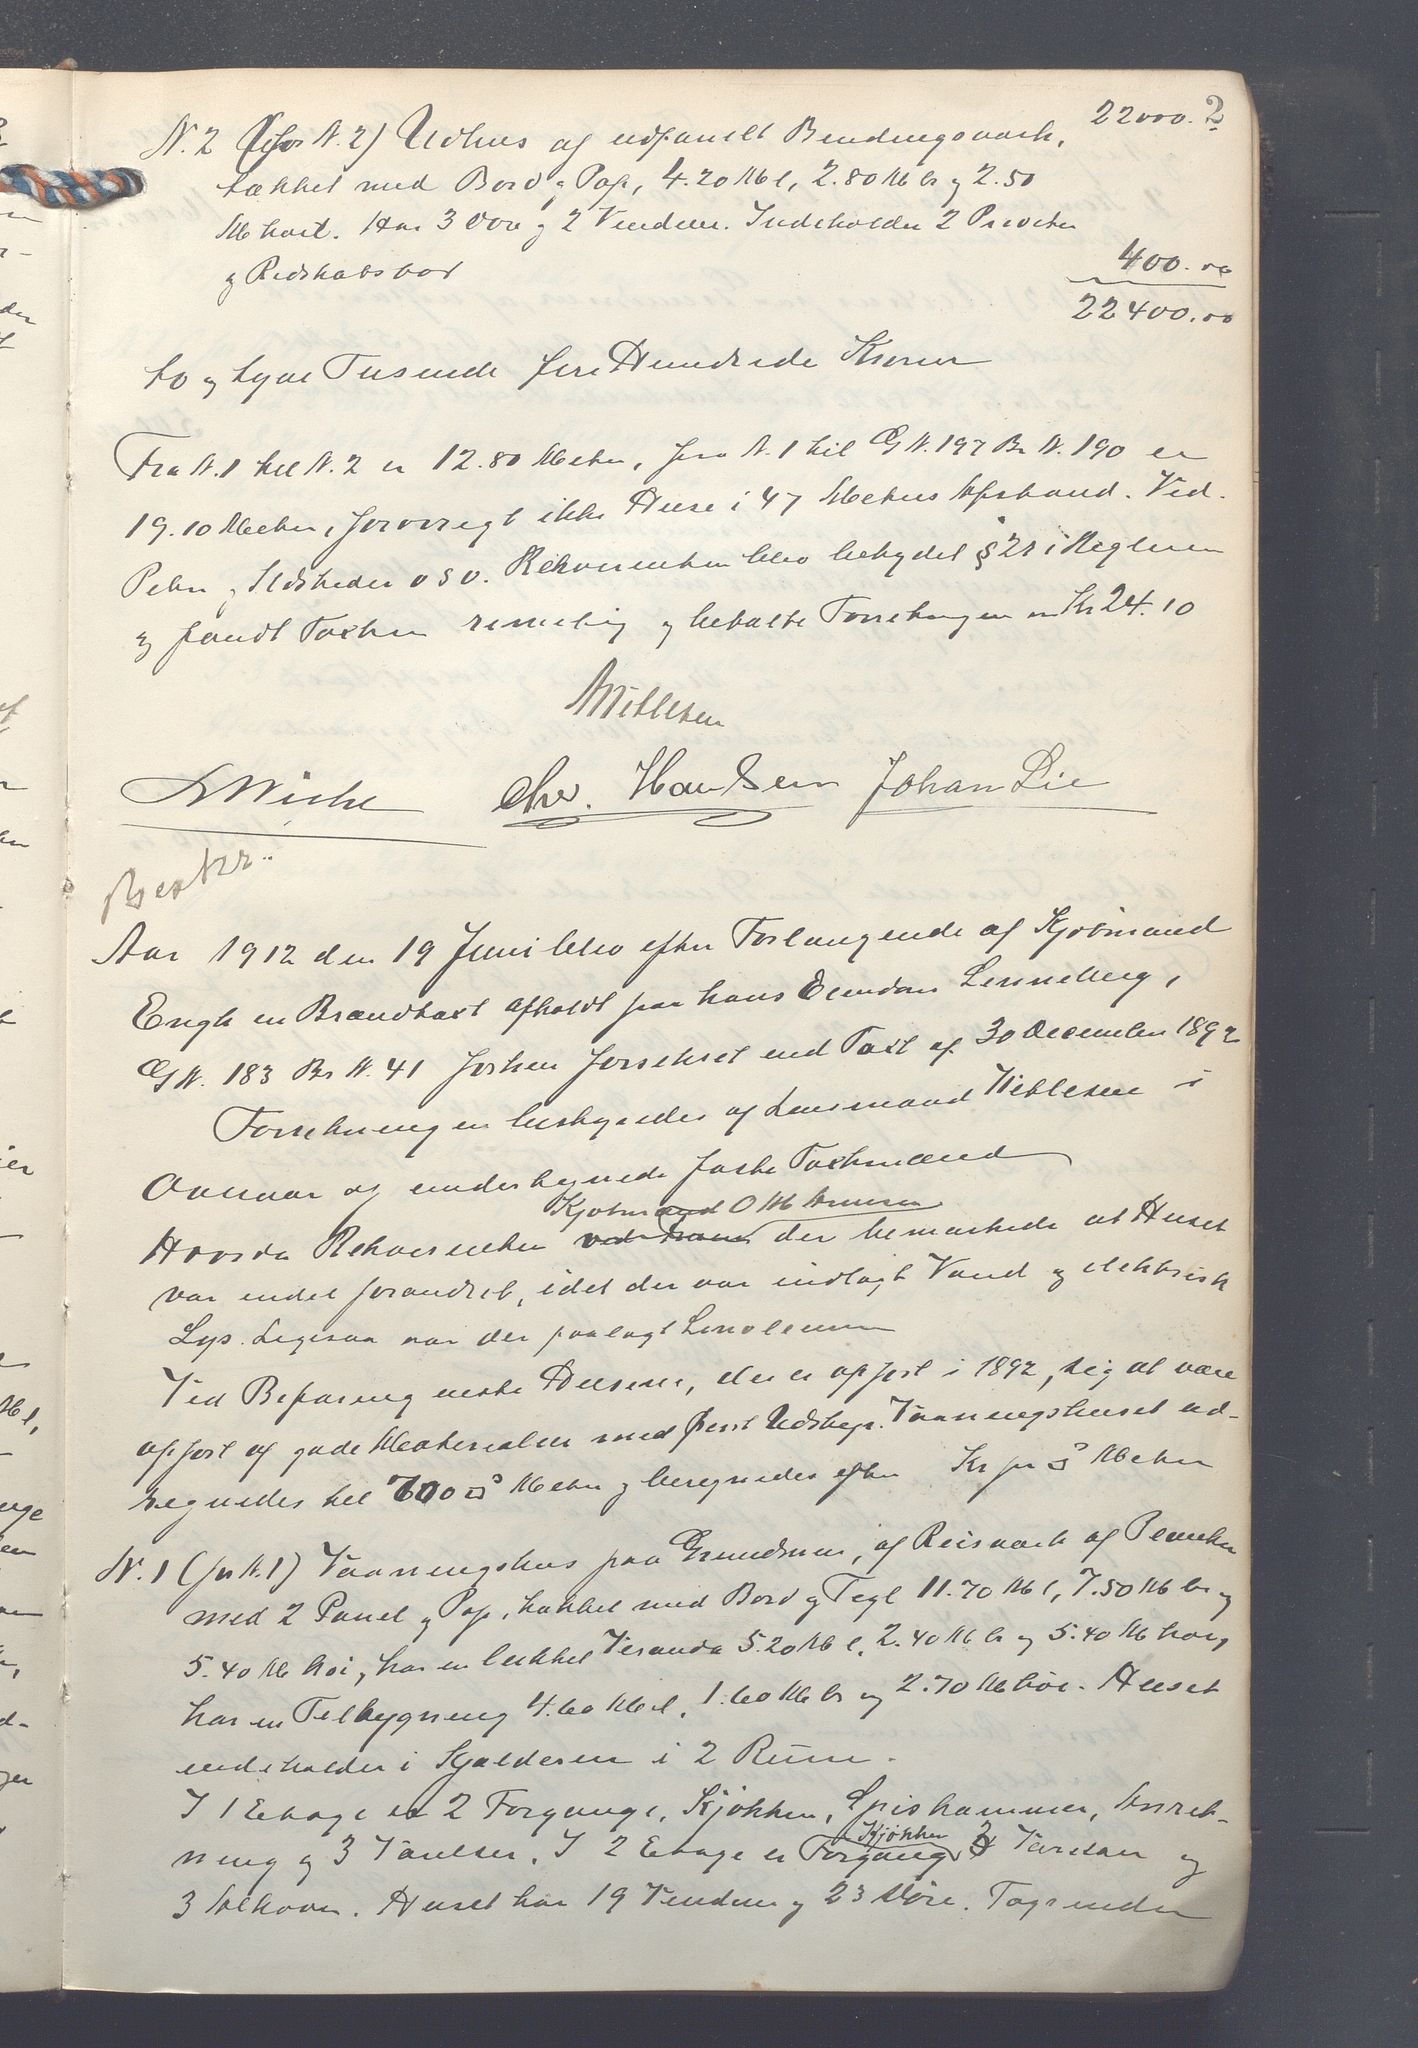 22000. 2
N. 2 (før N. 2) Udhus af udpanelt Bindingsværk,
tækket med Bord og Pap, 4.20 M l, 2.80 M br og 2.50
M høit. Har 3 Døre og 2 Vinduer. Indeholder 2 Priveter
og Redskabsbod
400.00
22400.00
to og tyve Tusende fire Hundrede Kroner
Fra N. 1 til N. 2 er 12.80 Meter, fra N. 1 til G N. 197 Br N. 190 er
19.10 Meter, forøvrigt ikke Huse i 47 Meters Afstand. Ved.
Piber og Ildsteder osv. Rekvirenten blev betydet § 28 i Reglerne
og fandt Taxten rimelig og betalte Forretningen m Kr 24.10
Mitlesen
Chr. Hansen Johan Lie
Aar 1912 den 19 Juni blev efter Forlangende af Kjøbmand
Engh en Brandtaxt afholdt paa hans Eiendom Linneberg,
G N. 183 Br N. 41 forhen forsikret ved Taxt af 30 December 1892
Forretningen bestyredes af Lensmand Mitlesen i
Overvær af undertegnede faste Taxtmænd
Kjøbmand O M
Hvorda Rekvirenten ved der bemærkede at Huset
var endel forandret, idet der var indlagt Vand og elektrisk
Lys. Ligesaa var der paalagt Linoleum
Ved Befaring viste Husene, der er opført i 1892, sig at være
opført af gode Materialer med pent Udstyr. Vaaningshuset ud-
regnedes til 700 □ Meter og beregnedes efter Kr pr □ Meter
N. 1 (før N. 1) Vaaningshus paa Grundmur, af Reisværk af Planker
med 2 Panel og Pap, tækket med Bord og Tegl 11.70 M l, 7.50 M br og
5.40 M høi, har en lukket Veranda 5.20 M l, 2.40 M br og 5.40 M høi,
har en Tilbygning 4.60 M l, 1.60 M br og 2.70 M høi. Huset
indeholder i Kjælderen i 2 Rum.
I 1 Etage er 2 Forgange, Kjøkken, Spiskammer, Anret-
Kjøkken 2
ning og 3 Værelser. I 2 Etage er Forgang, Værelser og
3 Alkover. Huset har 19 Vinduer og 23 Døre. Tagrender